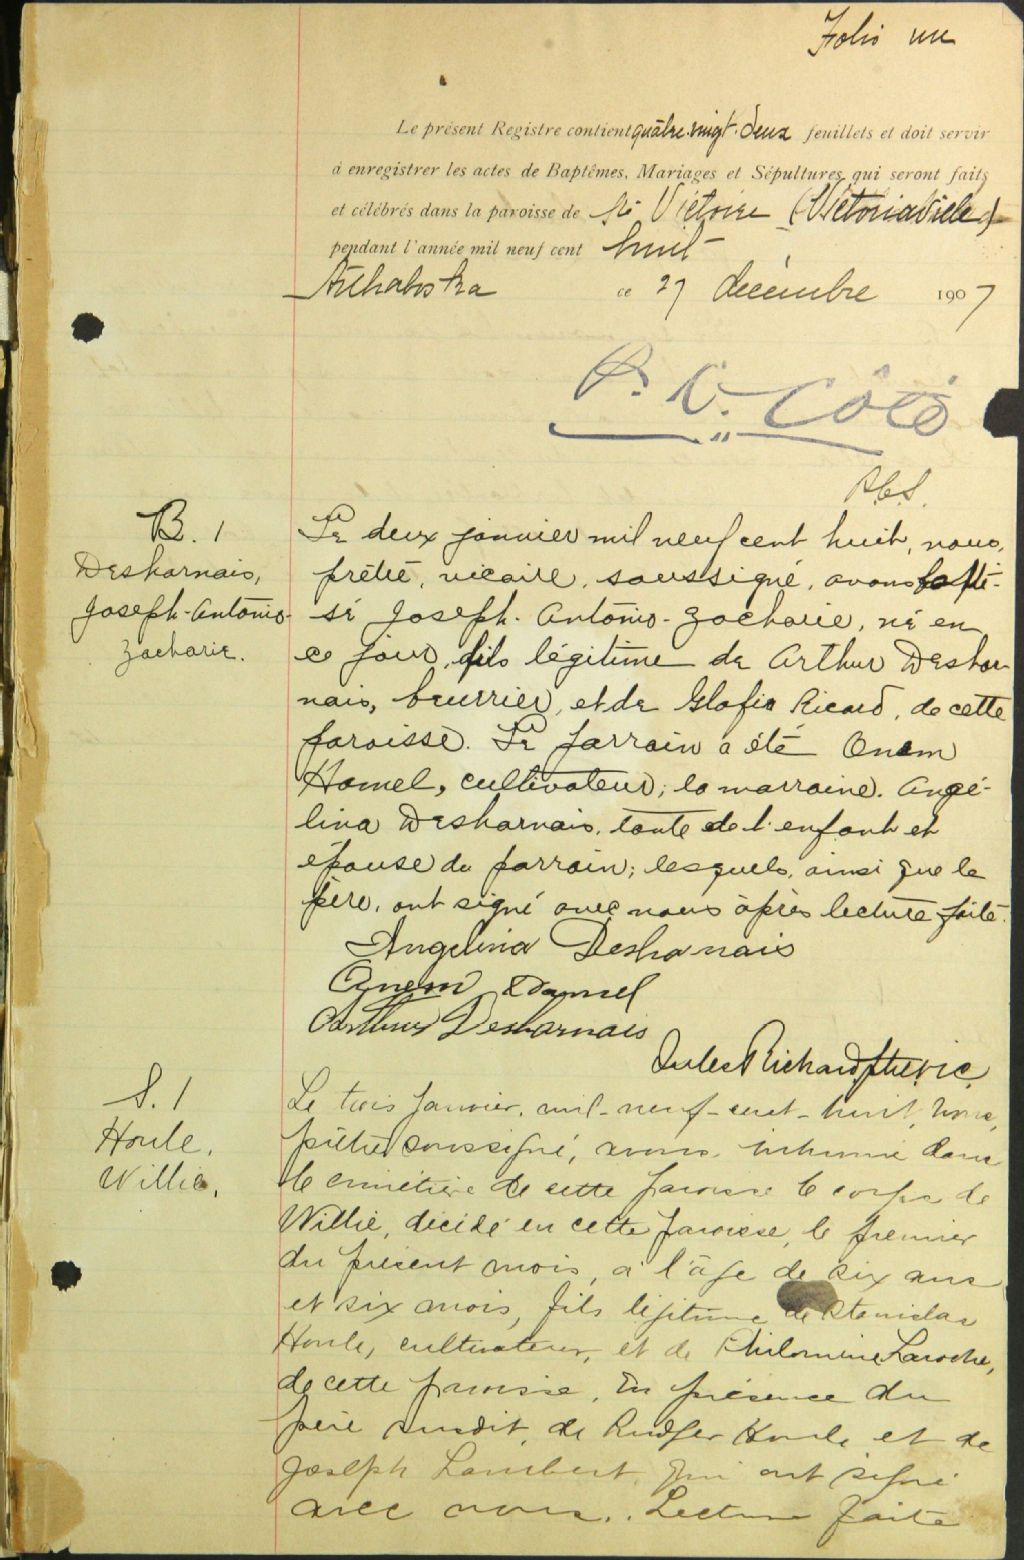 Folio un
Le présent Registre contient quatre-vingt-deux feuillets et doit servir
à enregistrer les actes de Baptêmes, Mariages et Sépultures qui seront faits
et célébrés dans la paroisse de Ste Victoire (Victoriaville)
pendant l'année mil neuf cent huit
Arthabaska ce 27 décembre 1907
P. C. Côté
P.C.S.
B. 1
Desharnais,
Joseph-Antonio-
Zacharie.
Le deux janvier mil neuf cent huit, nous,
prêtre, vicaire, soussigné, avons bapti-
sé Joseph-Antonio-Zacharie, né en
ce jour, fils légitime de Arthur Deshar-
nais, beurrier, et de Glafia Ricard, de cette
paroisse. Le parrain a été Onem
Hamel, cultivateur; la marraine, Angé-
lina Desharnais, tante de l'enfant et
épouse du parrain; lesquels, ainsi que le
père, ont signé avec nous après lecture faite.
Angelina Desharnais
Onem Hamel
Arthur Desharnais
Jules Richard, ptre vic.
S. 1
Houle,
Willie,
Le trois Janvier, mil-neuf-cent-huit, nous,
prêtre soussigné, avons inhumé dans
le cimetière de cette paroisse le corps de
Willie, décédé en cette paroisse, le premier
du présent mois, à l'âge de six ans
et six mois, fils légitime de Stanislas
Houle, cultivateur, et de Philomène Laroche,
de cette paroisse. En présence du
père susdit, de Rudger Houle et de
Joseph Lambert, qui ont signé
avec nous. Lecture faite